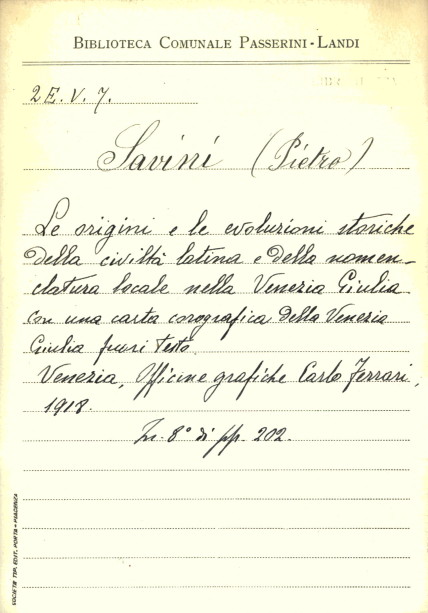 BIBLIOTECA COMUNALE PASSERINI-LANDI
2E.V.7.
Savini (Pietro)
Le origini e le evoluzioni storiche
della civiltà latina e della nomen-
clatura locale nella Venezia Giulia
con una carta corografica della Venezia
Giulia fuori testo.
Venezia, Officine grafiche Carlo Ferrari,
1918.
In. 8° di pp. 202.
SOCIETÀ TIP. EDIT. PORTA - PIACENZA